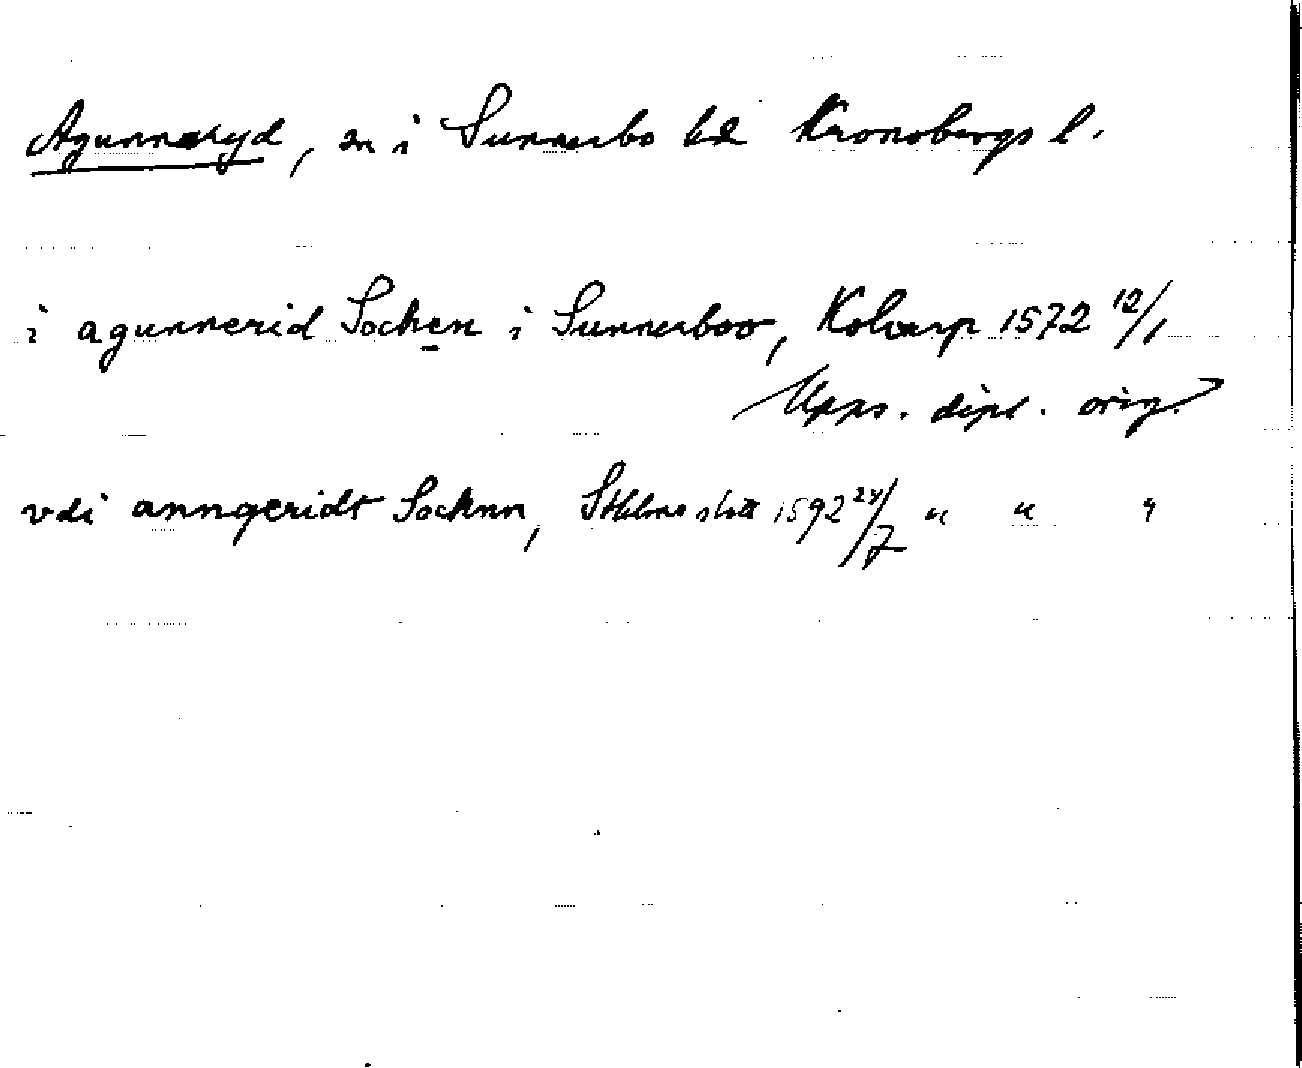 Agunnaryd, sn i Sunnerbo hd Kronobergs l.
i agunnerid Socken i Sunnerboo, Kolvarp 1572 12/1
Upps. dipl. orig.
vdi anngeridt Socknn, Sthlms slott 1592 24/7 " " "